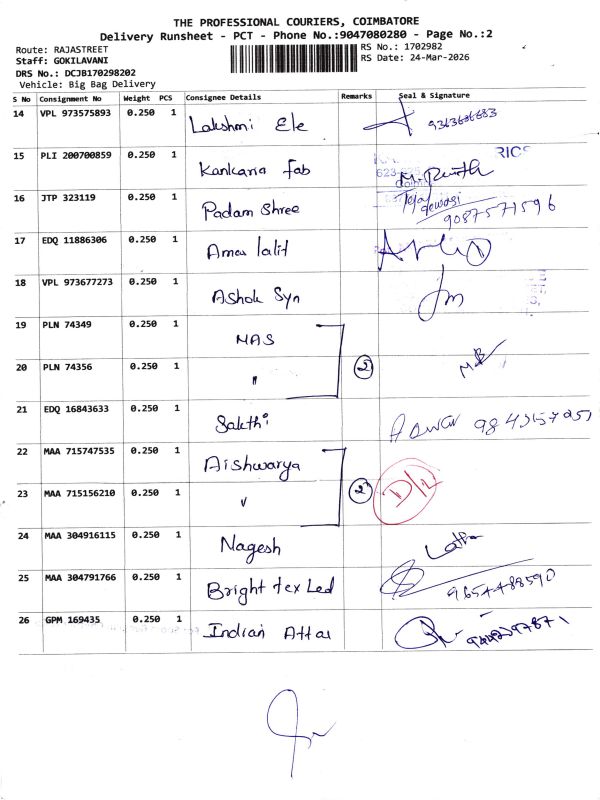 THE PROFESSIONAL COURIERS, COIMBATORE
Delivery Runsheet - PCT - Phone No.:9047080280 - Page No.:2
Route: RAJASTREET
RS No.: 1702982
Staff: GOKILAVANI
RS Date: 24-Mar-2026
DRS No.: DCJB170298202
Vehicle: Big Bag Delivery
S No Consignment No Weight PCS Consignee Details Remarks Seal & Signature
14 VPL 973575893 0.250 1 Lakshmi Ele
15 PLI 200700859 0.250 1 Kankaria fab RICS
16 JTP 323119 0.250 1 Padam Shree 9087571596
17 EDQ 11886306 0.250 1 Amar lalit
18 VPL 973677273 0.250 1 Ashok Syn
19 PLN 74349 0.250 1 MAS
20 PLN 74356 0.250 1 " 2
21 EDQ 16843633 0.250 1 Sakthi
22 MAA 715747535 0.250 1 Aishwarya
23 MAA 715156210 0.250 1 " 2 D/L
24 MAA 304916115 0.250 1 Nagesh Latha
25 MAA 304791766 0.250 1 Bright tex Led 9654488590
26 GPM 169435 0.250 1 Indian Attar